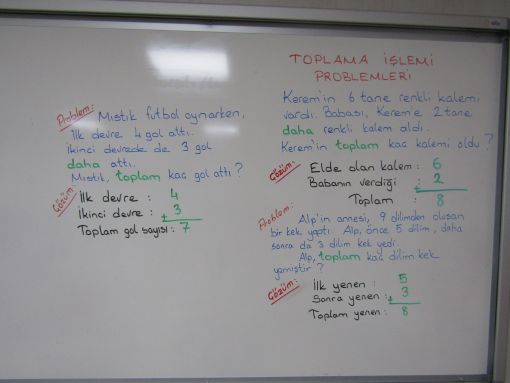 TOPLAMA İŞLEMİ
PROBLEMLERİ
Problem:
Mıstık futbol oynarken,
ilk devre 4 gol attı.
İkinci devrede de 3 gol
daha attı.
Mıstık, toplam kaç gol attı?
Çözüm:
İlk devre : 4
İkinci devre : + 3
Toplam gol sayısı: 7
Kerem'in 6 tane renkli kalemi
vardı. Babası, Kerem'e 2 tane
daha renkli kalem aldı.
Kerem'in toplam kaç kalemi oldu?
Çözüm:
Elde olan kalem : 6
Babanın verdiği : + 2
Toplam : 8
Problem:
Alp'in annesi, 9 dilimden oluşan
bir kek yaptı. Alp, önce 5 dilim, daha
sonra da 3 dilim kek yedi.
Alp, toplam kaç dilim kek
yemiştir?
Çözüm:
İlk yenen : 5
Sonra yenen : + 3
Toplam yenen : 8